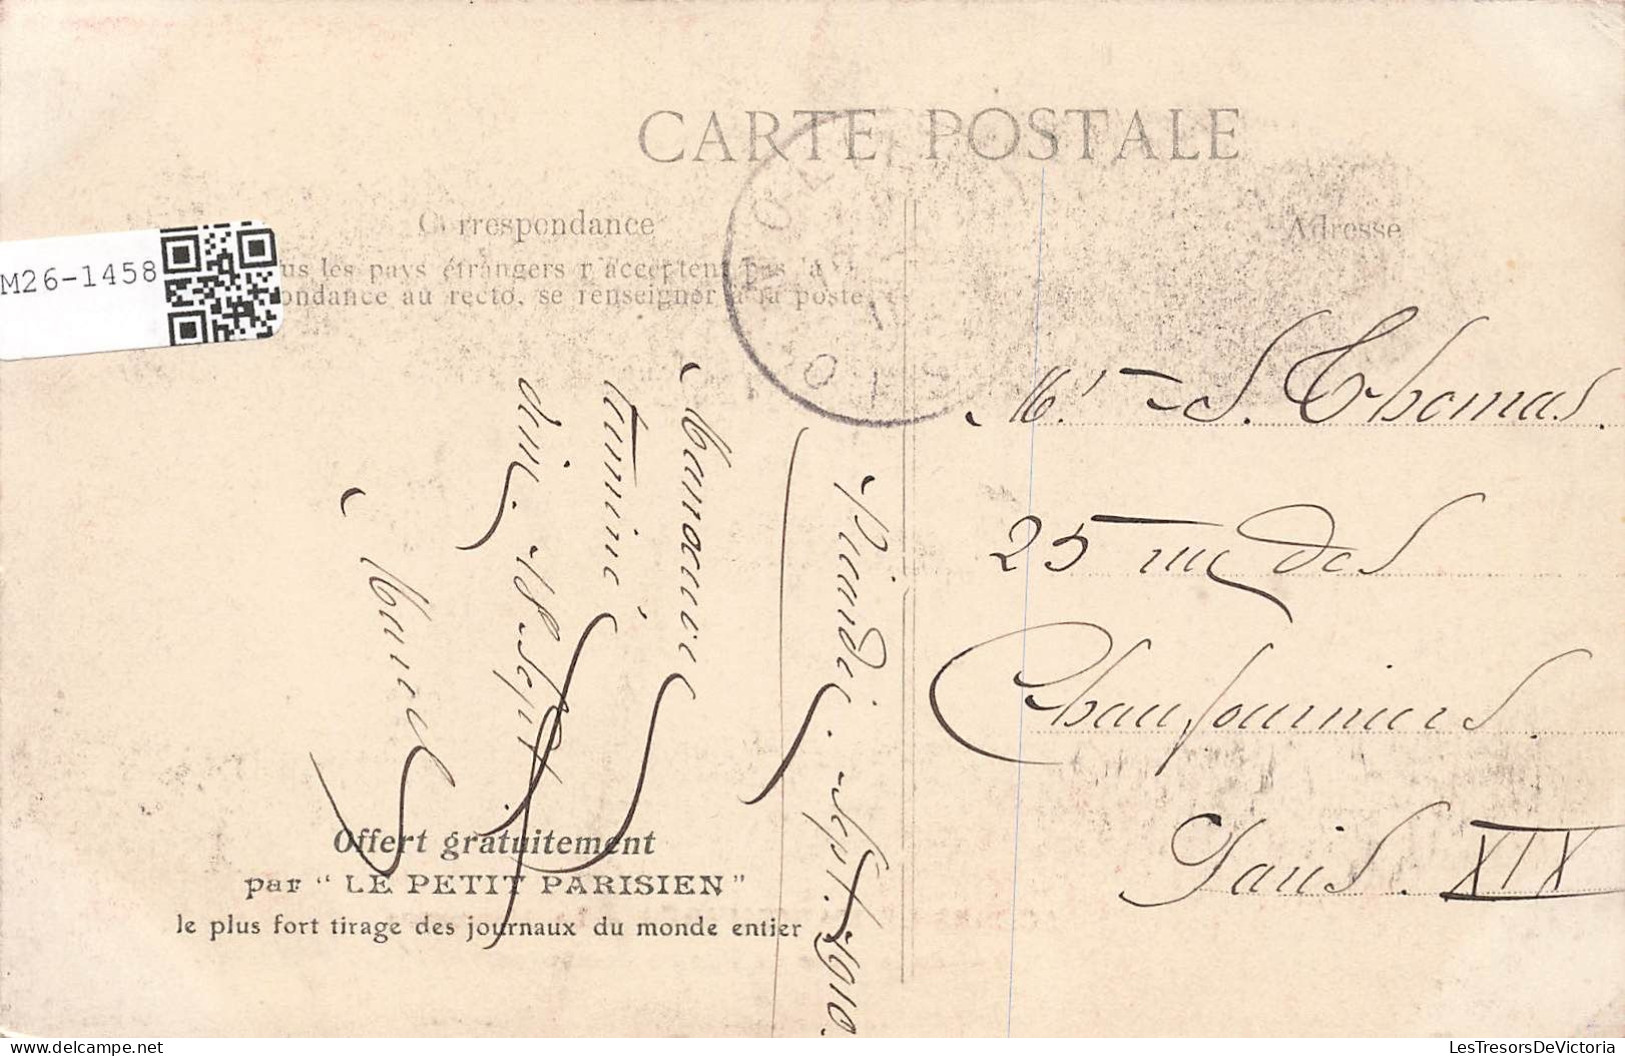 CARTE POSTALE
Correspondance
us les pays étrangers n'acceptent pas la
ondance au recto, se renseigner à la poste
Adresse
M26-1458
Mr S. Thomas.
25 rue des
Chaufourniers.
Paris. XIX
Sept. 1910.
Manœuvre
terminé
18 Sept.
Marcel
Offert gratuitement
par " LE PETIT PARISIEN "
le plus fort tirage des journaux du monde entier
delcampe.net
LesTresorsDeVictoria